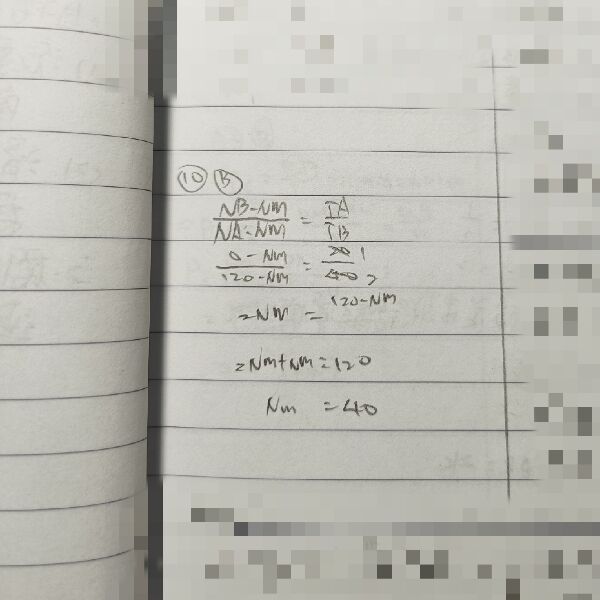 10 B
NB-NM / NA-NM = TA / TB
0 - NM / 120-NM = 20 1 / 40 2
2NM = 120-NM
2NM+NM=120
NM = 40